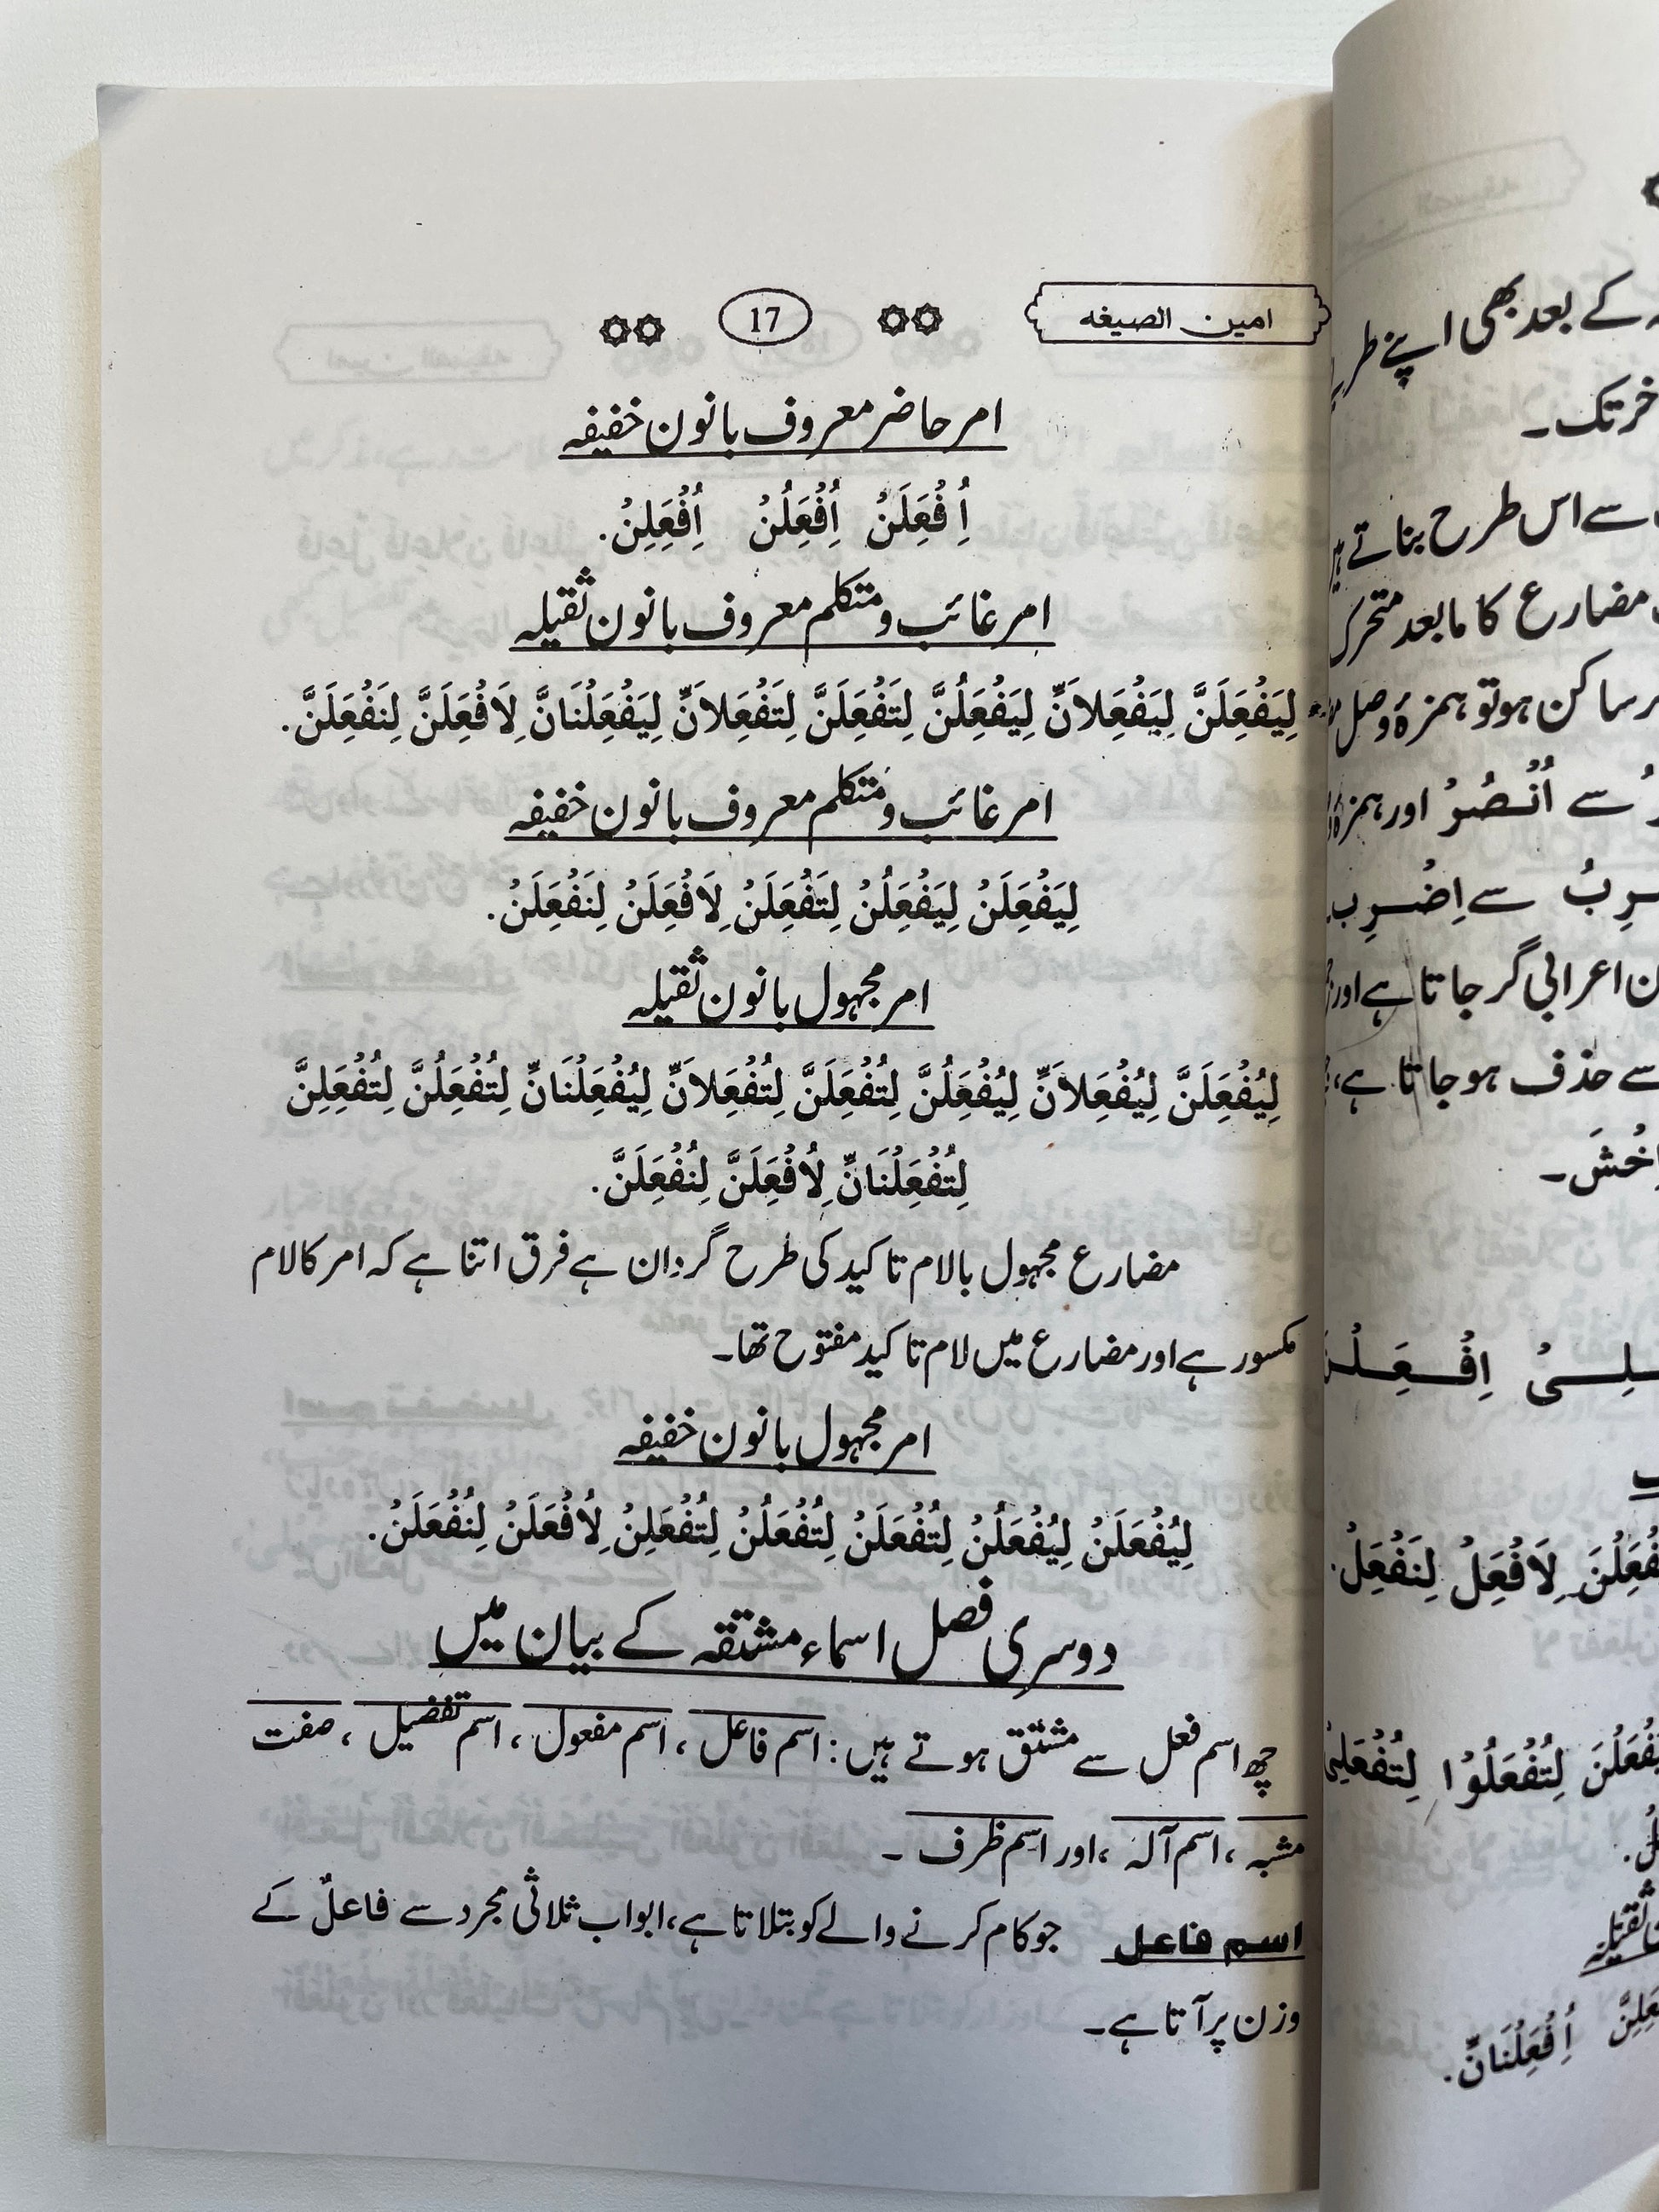 امین الصیغه 17
امر حاضر معروف بانون خفیفہ
اُِفْعَلَنْ اُِفْعَلُنْ اُِفْعَلِنْ.
امر غائب و متکلم معروف بانون ثقیلہ
لِیَفْعَلَنَّ لِیَفْعَلاَنِّ لِیَفْعَلُنَّ لِتَفْعَلَنَّ لِتَفْعَلاَنِّ لِیَفْعَلْنَانَّ لِاَفْعَلَنَّ لِنَفْعَلَنَّ.
امر غائب و متکلم معروف بانون خفیفہ
لِیَفْعَلَنْ لِیَفْعَلُنْ لِتَفْعَلَنْ لِاَفْعَلَنْ لِنَفْعَلَنْ.
امر مجہول بانون ثقیلہ
لِیُفْعَلَنَّ لِیُفْعَلاَنِّ لِیُفْعَلُنَّ لِتُفْعَلَنَّ لِتُفْعَلاَنِّ لِیُفْعَلْنَانِّ لِتُفْعَلُنَّ لِتُفْعَلِنَّ
لِتُفْعَلْنَانِّ لِاُفْعَلَنَّ لِنُفْعَلَنَّ.
مضارع مجہول بالام تاکید کی طرح گردان ہے فرق اتنا ہے کہ امر کا لام
مکسور ہے اور مضارع میں لام تاکید مفتوح تھا۔
امر مجہول بانون خفیفہ
لِیُفْعَلَنْ لِیُفْعَلُنْ لِتُفْعَلَنْ لِتُفْعَلُنْ لِتُفْعَلِنْ لِاُفْعَلَنْ لِنُفْعَلَنْ.
دوسری فصل اسماء مشتقہ کے بیان میں
چھ اسم فعل سے مشتق ہوتے ہیں: اسم فاعل، اسم مفعول، اسم تفضیل، صفت
مشبہ، اسم آلہ، اور اسم ظرف ۔
اسم فاعل جو کام کرنے والے کو بتلاتا ہے، ابواب ثلاثی مجرد سے فاعلٌ کے
وزن پر آتا ہے۔
کے بعد بھی اپنے
تک۔
سے اس طرح بناتے ہیں
مضارع کا مابعد متحرک
ساکن ہو تو ہمزۂ وصل
سے اُنْصُرْ اور ہمزۂ
سے اِضْرِب
اعرابی گر جاتا ہے اور
سے حذف ہو جاتا ہے،
لِاَفْعَلْ لِنَفْعَلْ.
لِتُفْعَلُوْا
ثقیلہ
اُِفْعَلْنَانِّ.